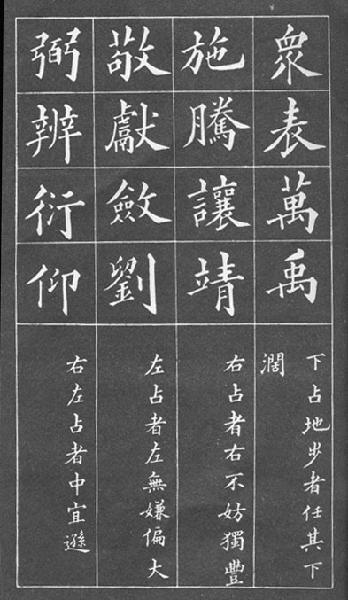 眾表萬禹
下占地步者任其下
濶
施騰讓靖
右占者右不妨獨豐
敬獻斂劉
左占者左無嫌偏大
弼辨衍仰
右左占者中宜遜